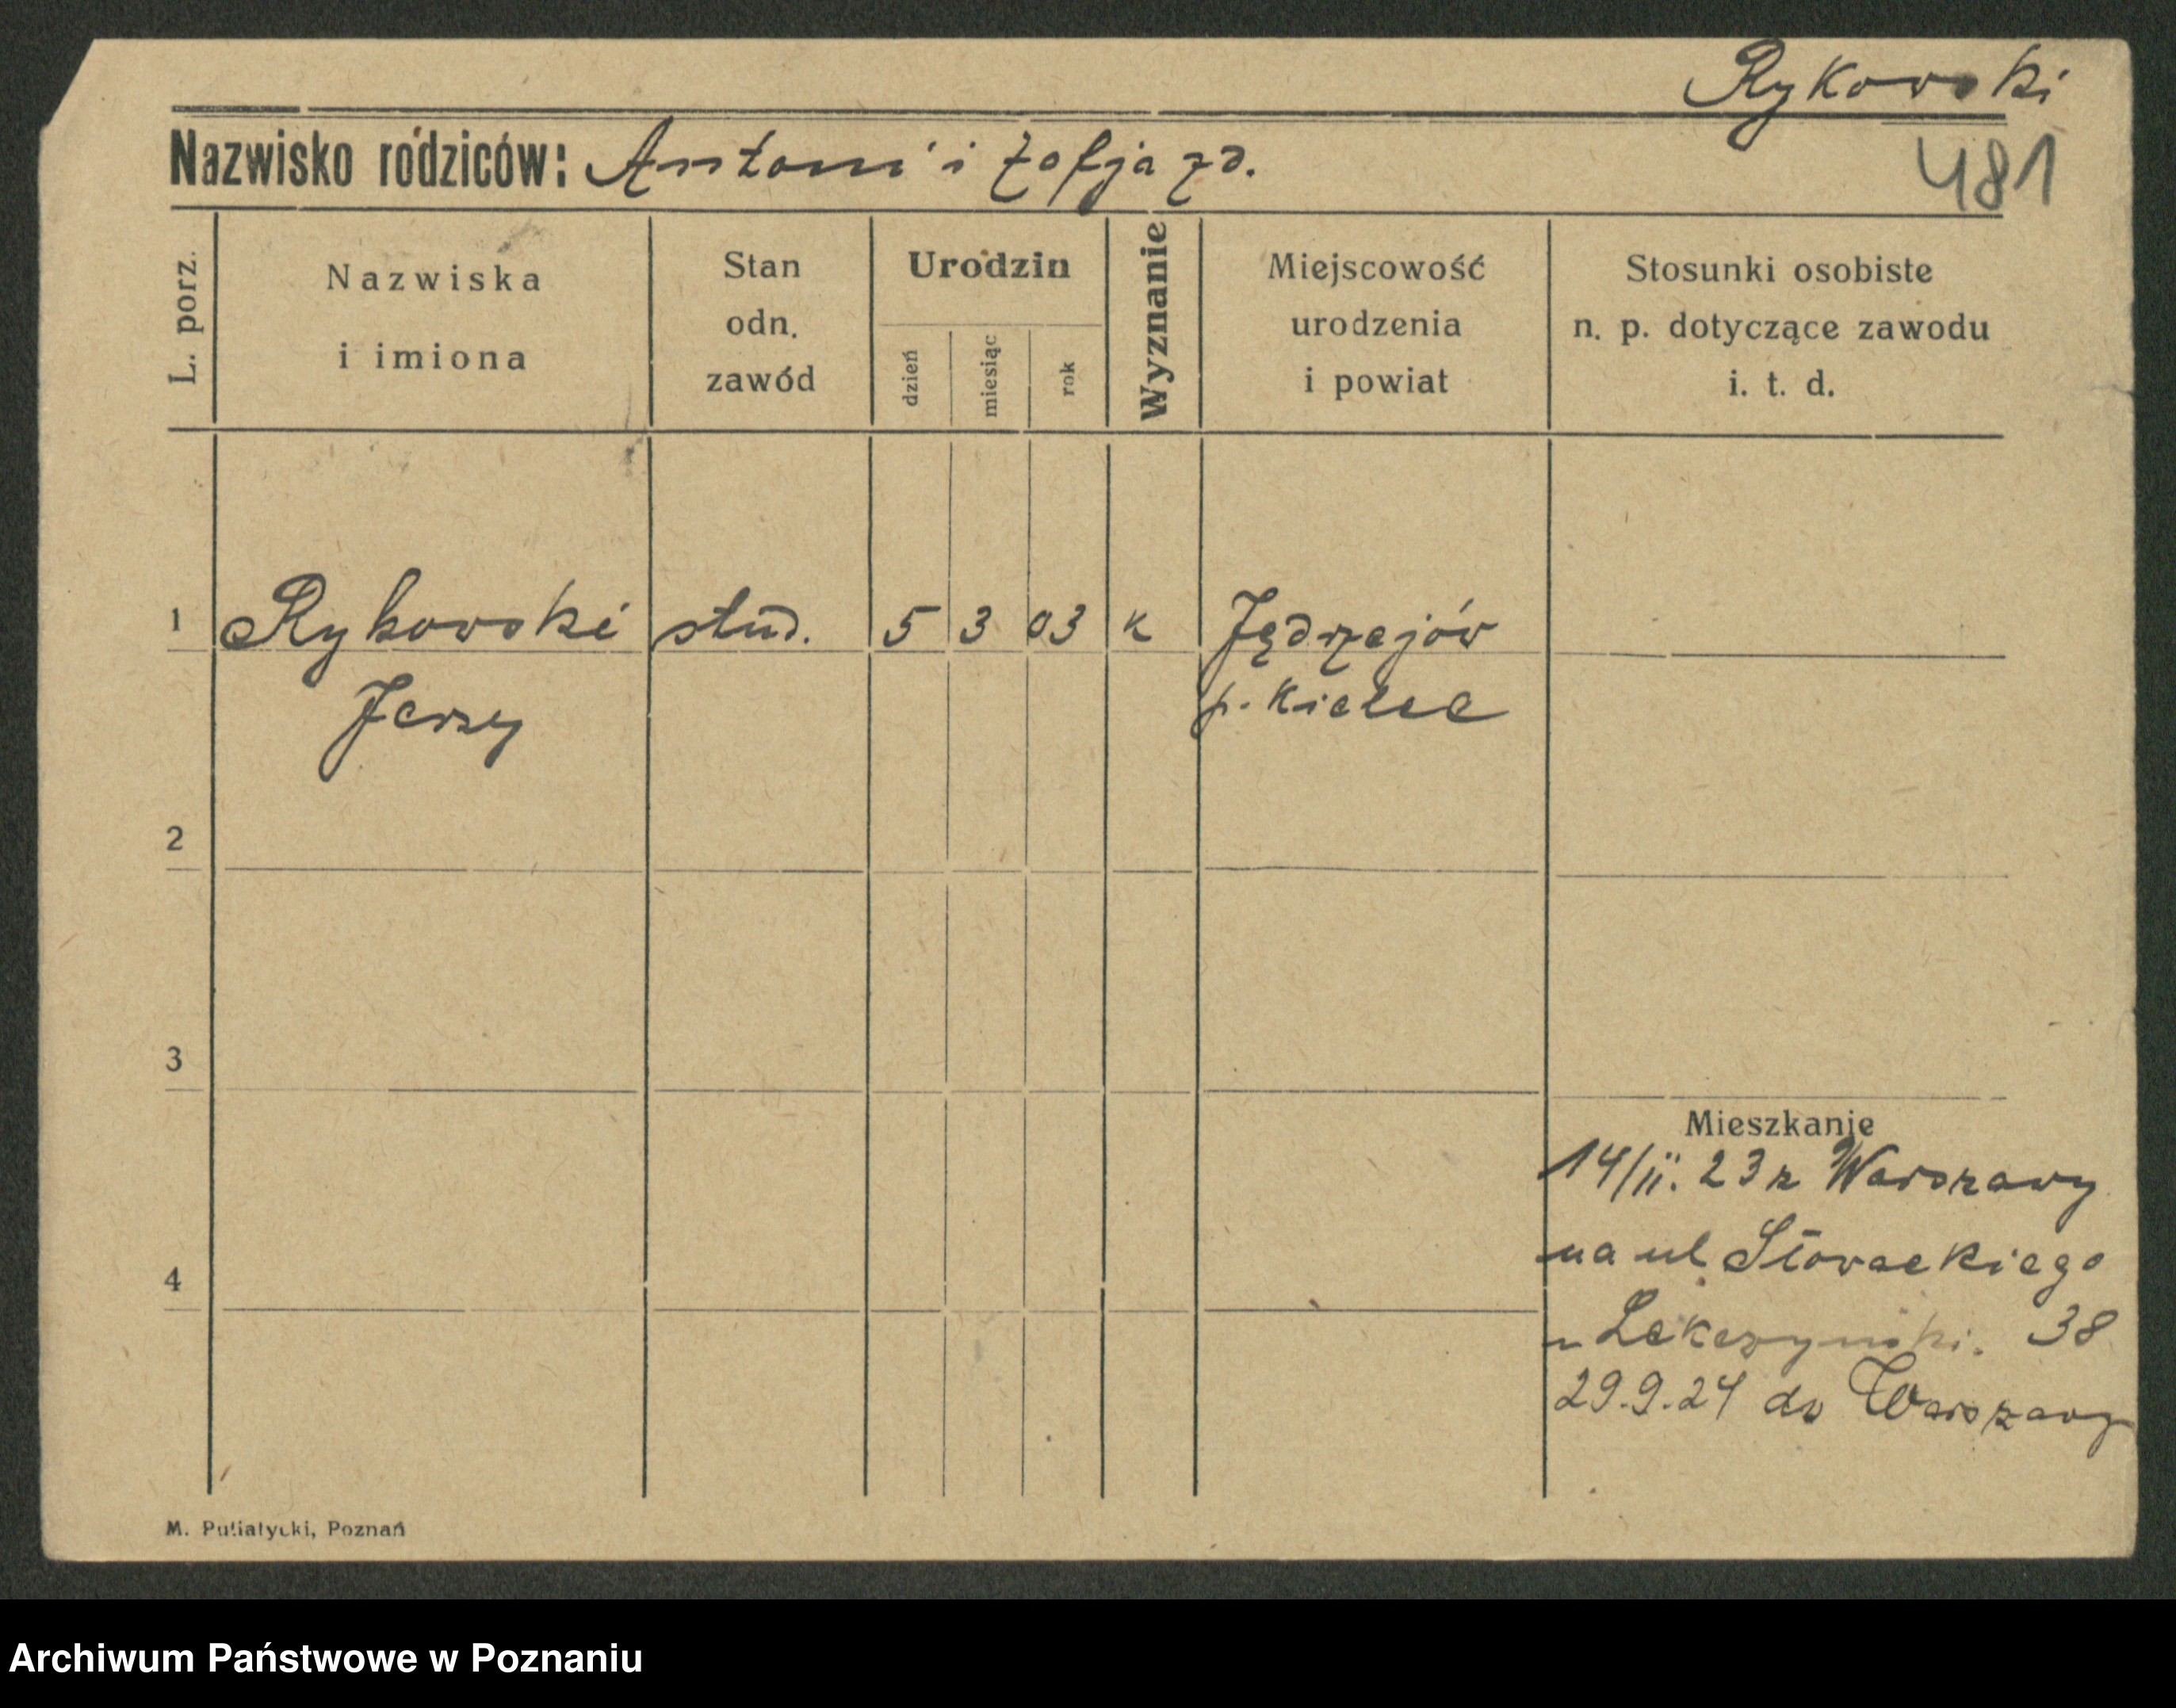 Rykowski
Nazwisko rodziców: Antoni i Zofja zd.
481
L. porz.
Nazwiska
i imiona
Stan
odn.
zawód
Urodzin
dzień
miesiąc
rok
Wyznanie
Miejscowość
urodzenia
i powiat
Stosunki osobiste
n. p. dotyczące zawodu
i. t. d.
1 Rykowski stud. 5 3 03 k Jędrzejów
Jerzy p. Kielce
2
3
Mieszkanie
14/ii. 23 z Warszawy
na ul. Słowackiego
4
38
29.9.24 do Warszawy
M. Putiatycki, Poznań
Archiwum Państwowe w Poznaniu